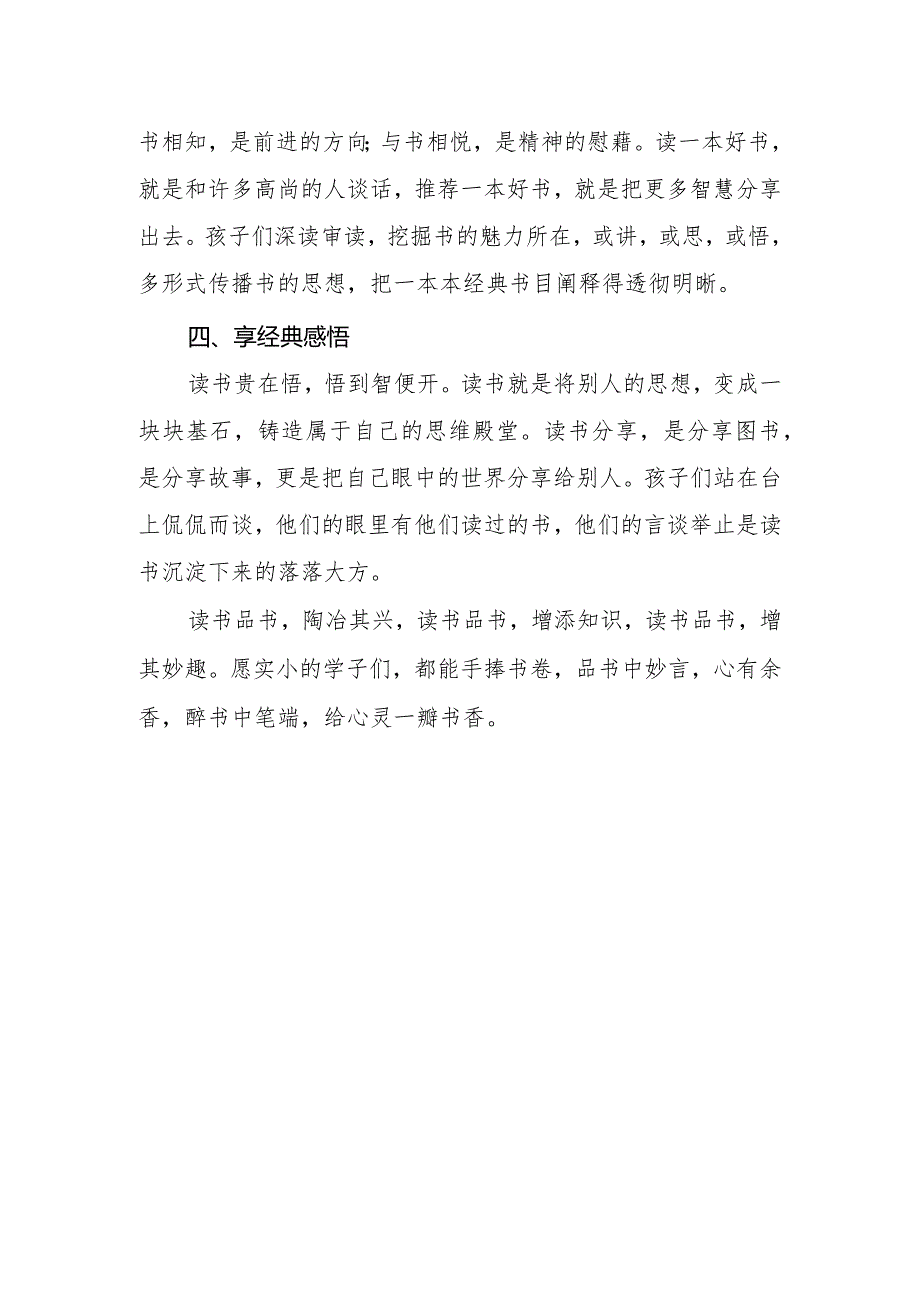 书相知，是前进的方向；与书相悦，是精神的慰藉。读一本好书，
就是和许多高尚的人谈话，推荐一本好书，就是把更多智慧分享
出去。孩子们深读审读，挖掘书的魅力所在，或讲，或思，或悟，
多形式传播书的思想，把一本本经典书目阐释得透彻明晰。
四、享经典感悟
读书贵在悟，悟到智便开。读书就是将别人的思想，变成一
块块基石，铸造属于自己的思维殿堂。读书分享，是分享图书，
是分享故事，更是把自己眼中的世界分享给别人。孩子们站在台
上侃侃而谈，他们的眼里有他们读过的书，他们的言谈举止是读
书沉淀下来的落落大方。
读书品书，陶冶其兴，读书品书，增添知识，读书品书，增
其妙趣。愿实小的学子们，都能手捧书卷，品书中妙言，心有余
香，醉书中笔端，给心灵一瓣书香。